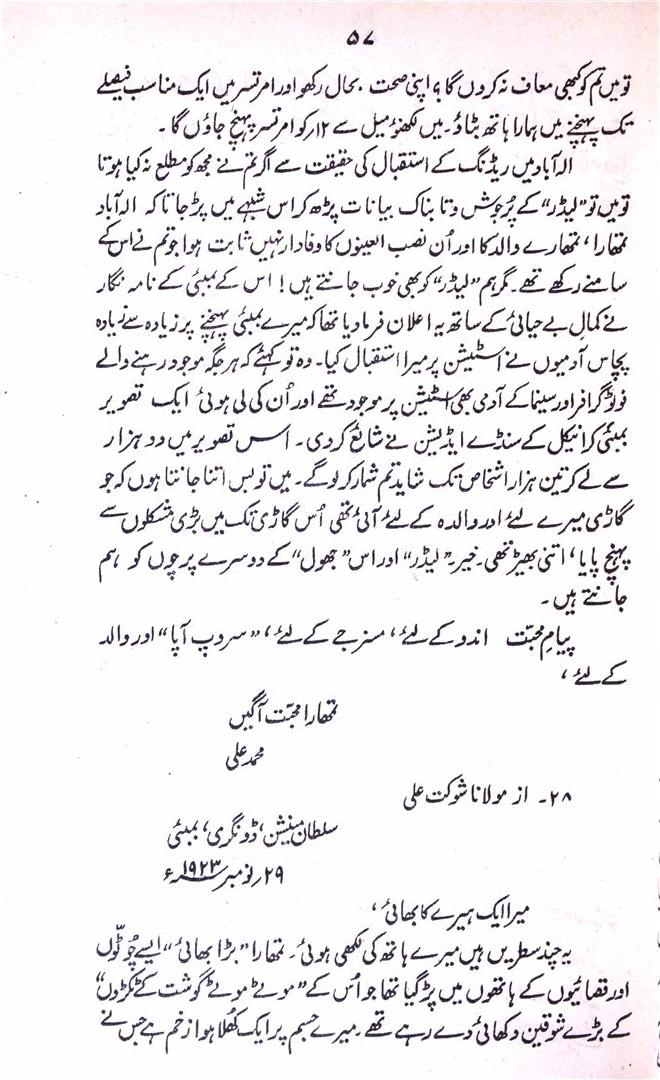 ۵۷
تو میں تم کو کبھی معاف نہ کروں گا؟ اپنی صحت بحال رکھو اور امرتسر میں ایک مناسب فیصلے
تک پہنچنے میں ہمارا ہاتھ بٹاؤ۔ میں لکھنؤ میل سے ۱۲؍ کو امرتسر پہنچ جاؤں گا۔
الہ آباد میں ریڈنگ کے استقبال کی حقیقت سے اگر تم نے مجھ کو مطلع نہ کیا ہوتا
تو میں تو ”لیڈر“ کے پُرجوش و تابناک بیانات پڑھ کر اس شبہے میں پڑ جاتا کہ الہ آباد
تمھارا، تمھارے والد کا اور اُن نصب العینوں کا وفادار نہیں ثابت ہوا جو تم نے اس کے
سامنے رکھے تھے۔ مگر ہم ”لیڈر“ کو بھی خوب جانتے ہیں! اس کے بمبئی کے نامہ نگار
نے کمالِ بے حیائی کے ساتھ یہ اعلان فرما دیا تھا کہ میرے بمبئی پہنچنے پر زیادہ سے زیادہ
پچاس آدمیوں نے اسٹیشن پر میرا استقبال کیا۔ وہ تو کہئے کہ ہر جگہ موجود رہنے والے
فوٹو گرافر اور سینما کے آدمی بھی اسٹیشن پر موجود تھے اور اُن کی لی ہوئی ایک تصویر
بمبئی کرانیکل کے سنڈے ایڈیشن نے شائع کر دی۔ اس تصویر میں دو ہزار
سے لے کر تین ہزار اشخاص تک شاید تم شمار کر لو گے۔ میں تو بس اتنا جانتا ہوں کہ جو
گاڑی میرے لئے اور والدہ کے لئے آئی تھی اُس گاڑی تک میں بڑی مشکلوں سے
پہنچ پایا، اتنی بھیڑ تھی۔ خیر۔ ”لیڈر“ اور اس ”جھول“ کے دوسرے پرچوں کو ہم
جانتے ہیں۔
پیامِ محبّت اندو کے لئے، مسز جے کے لئے، ”سروپ آپا“ اور والد
کے لئے،
تمھارا محبّت آگیں
محمد علی
۲۸۔ از مولانا شوکت علی
سلطان مینشن، ڈونگری، بمبئی
۲۹؍ نومبر ۱۹۲۳ء
میرا ایک ہیرے کا بھائی،
یہ چند سطریں ہیں میرے ہاتھ کی لکھی ہوئی۔ تمھارا ”بڑا بھائی“ ایسے چوٹّوں
اور قصائیوں کے ہاتھوں میں پڑ گیا تھا جو اُس کے ”موٹے موٹے گوشت کے ٹکڑوں“
کے بڑے شوقین دکھائی دے رہے تھے۔ میرے جسم پر ایک کُھلا ہوا زخم ہے جس نے